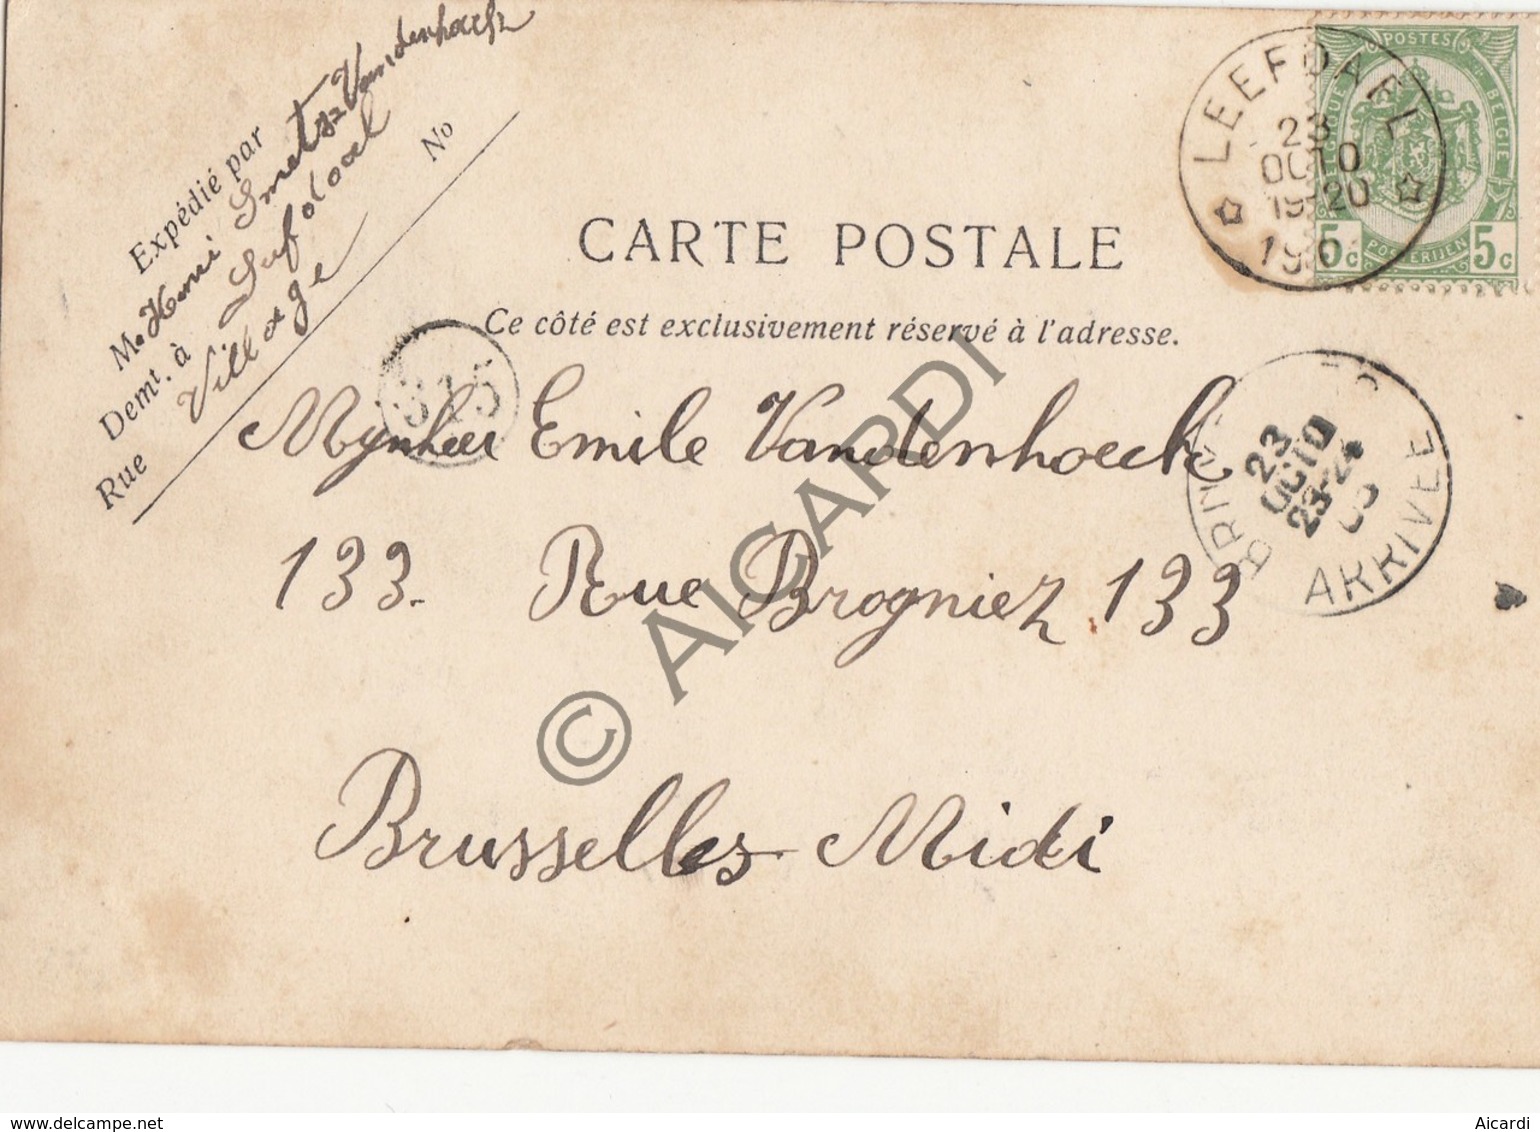 Expédié par
M. Henri Smets-Vandenhoeck
Demt. à
Village
Rue
No
CARTE POSTALE
Ce côté est exclusivement réservé à l'adresse.
LEEFDAEL
23
OCTO
19-20
POSTES
BELGIQUE
BELGIE
POSTERIJEN
5c
5c
315
Mijnheer Emile Vandenhoeck
133. Rue Brogniez 133
Brusselles-Midi
23
OCTO
23-24
ARRIVEE
© AICARDI
www.delcampe.net
Aicardi